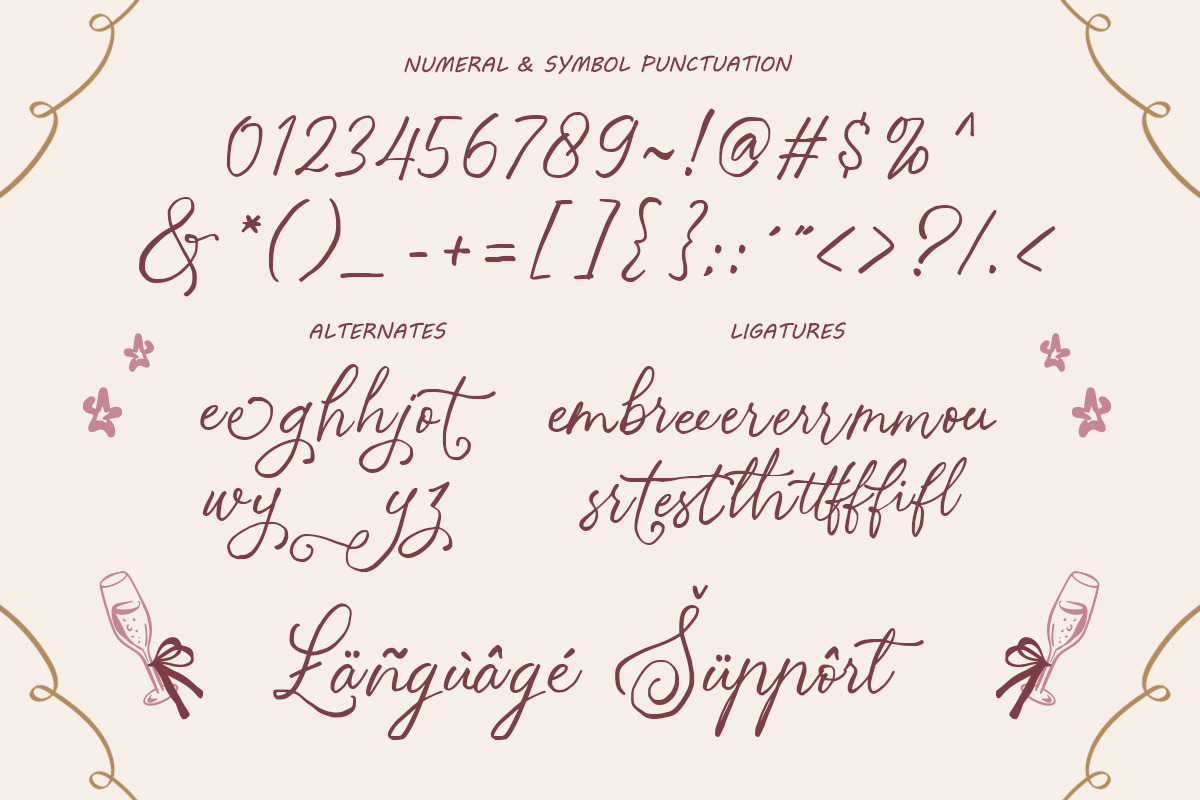 NUMERAL & SYMBOL PUNCTUATION
0123456789~!@#$%^
&*()_-+=[]{};:'"<>?/.<
ALTERNATES
LIGATURES
eeghhjot
embreeererrmmou
wy yz
srtestlthttffffifl
Länguâgé Šüppôrt